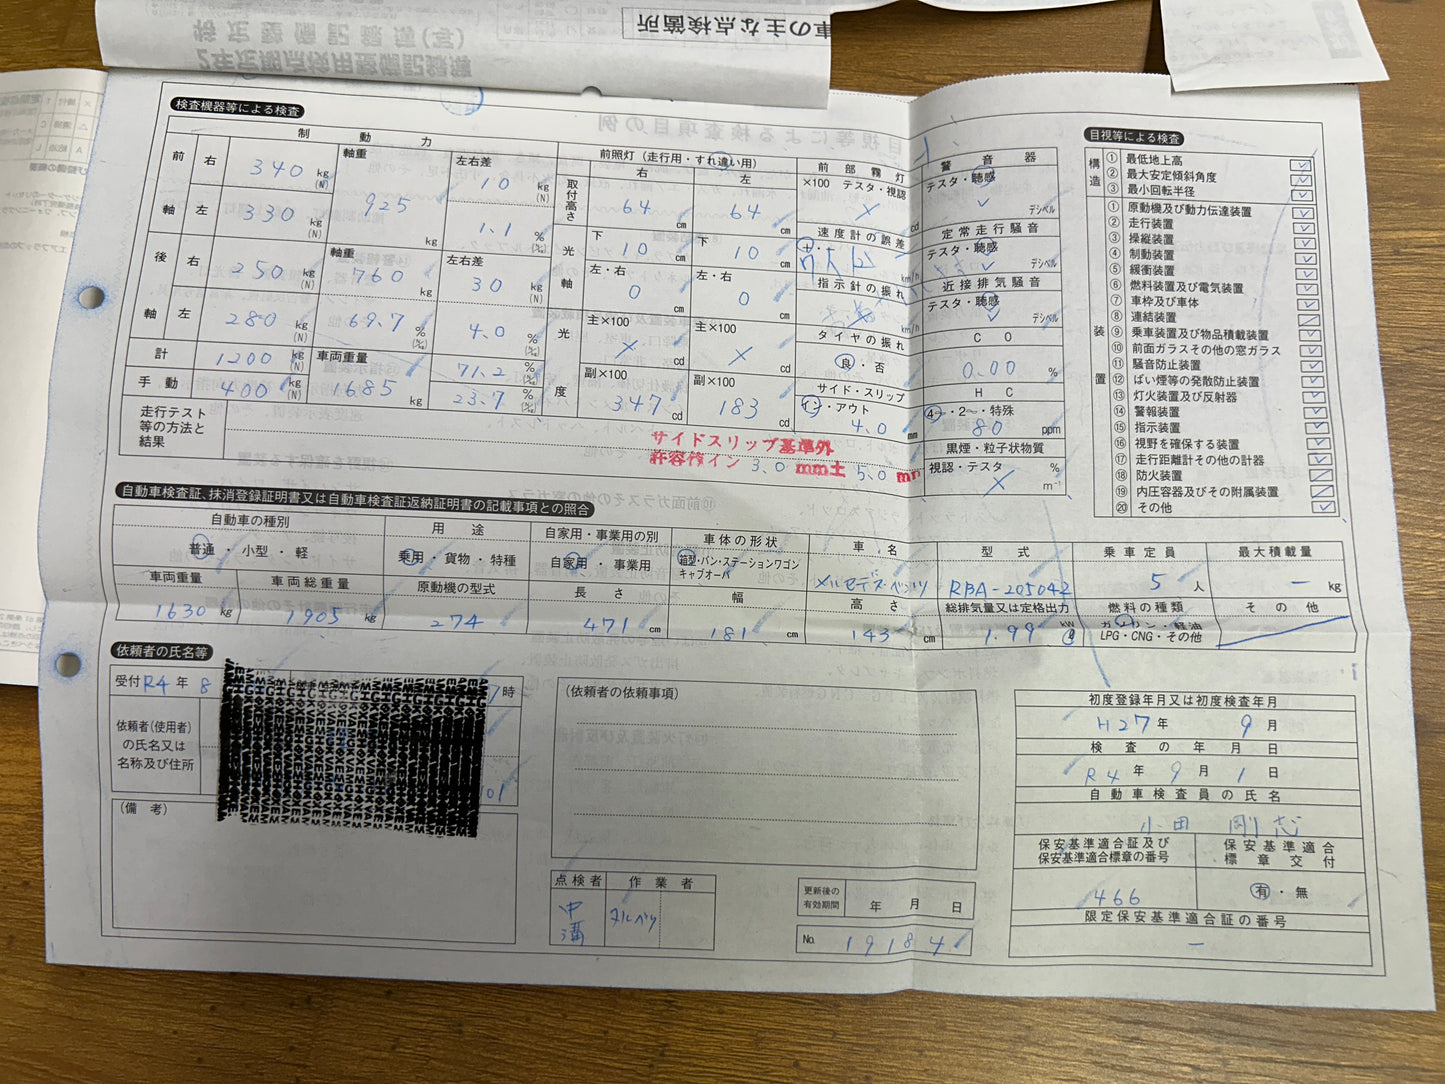 車の主な点検箇所
検査機器等による検査
制動力
前軸 右 340 kg (N) 軸重 925 kg 左右差 10 kg (N)
左 330 kg (N) 1.1 % (N/kg)
後軸 右 250 kg (N) 軸重 760 kg 左右差 30 kg (N)
左 280 kg (N) 69.7 % (N/kg) 4.0 % (N/kg)
計 1200 kg (N) 車両重量 1685 kg 71.2 % (N/kg)
手動 400 kg (N) 23.7 % (N/kg)
走行テスト等の方法と結果
前照灯(走行用・すれ違い用)
右 左
取付高さ 64 cm 64 cm
光軸 下 10 cm 下 10 cm
左・右 0 cm 左・右 0 cm
光度 主×100 × cd 主×100 × cd
副×100 347 cd 副×100 183 cd
前部霧灯
×100 テスタ・視認
× cd
速度計の誤差
+・
km/h
指示針の振れ
km/h
タイヤの振れ
良・否
サイド・スリップ
イン・アウト
4.0 mm
警音器
テスタ・聴感
デシベル
定常走行騒音
テスタ・聴感
デシベル
近接排気騒音
テスタ・聴感
デシベル
CO
0.00 %
HC
4・2〜・特殊
80 ppm
黒煙・粒子状物質
視認・テスタ % m⁻¹
×
サイドスリップ基準外
許容値イン 3.0 mm±5.0 mm
目視等による検査
構造
① 最低地上高
② 最大安定傾斜角度
③ 最小回転半径
装置
① 原動機及び動力伝達装置
② 走行装置
③ 操縦装置
④ 制動装置
⑤ 緩衝装置
⑥ 燃料装置及び電気装置
⑦ 車枠及び車体
⑧ 連結装置
⑨ 乗車装置及び物品積載装置
⑩ 前面ガラスその他の窓ガラス
⑪ 騒音防止装置
⑫ ばい煙等の発散防止装置
⑬ 灯火装置及び反射器
⑭ 警報装置
⑮ 指示装置
⑯ 視野を確保する装置
⑰ 走行距離計その他の計器
⑱ 防火装置
⑲ 内圧容器及びその附属装置
⑳ その他
自動車検査証、抹消登録証明書又は自動車検査証返納証明書の記載事項との照合
自動車の種別 用途 自家用・事業用の別 車体の形状 車名 型式 乗車定員 最大積載量
普通・小型・軽 乗用・貨物・特種 自家用・事業用 箱型・バン・ステーションワゴン キャブオーバ メルセデス・ベンツ RBA-205042 5 人 — kg
車両重量 車両総重量 原動機の型式 長さ 幅 高さ 総排気量又は定格出力 燃料の種類 その他
1630 kg 1905 kg 274 471 cm 181 cm 143 cm 1.99 kW ℓ ガソリン・軽油 LPG・CNG・その他
依頼者の氏名等
受付 R4 年 8 7時
依頼者(使用者)の氏名又は名称及び住所
101
(備考)
(依頼者の依頼事項)
点検者 作業者
中溝
更新後の有効期間 年 月 日
No. 19184
初度登録年月又は初度検査年月
H27 年 9 月
検査の年月日
R4 年 9 月 1 日
自動車検査員の氏名
小田 剛志
保安基準適合証及び保安基準適合標章の番号 保安基準適合標章交付
466 有・無
限定保安基準適合証の番号
—